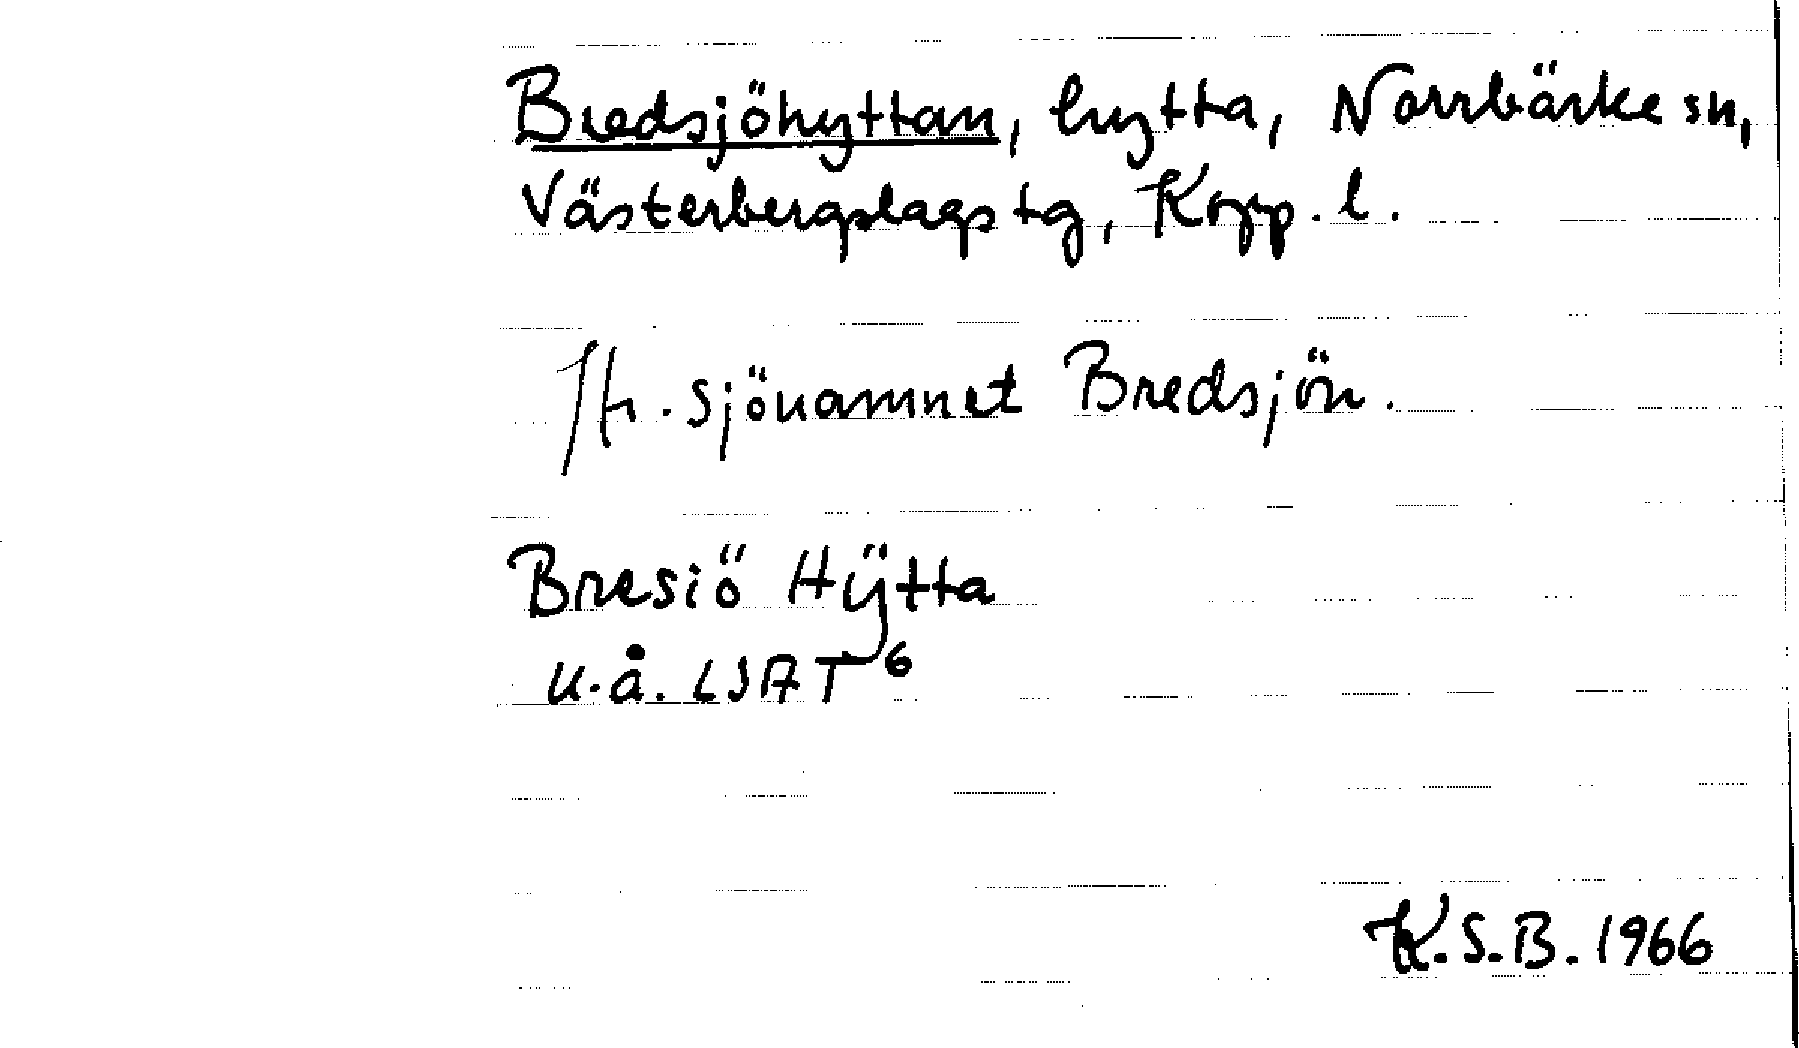 Bredsjöhyttan, hytta, Norrbärke sn,
Västerbergslags tg, Kopp. l.
Jfr. sjönamnet Bredsjön.
Bresiö Hÿtta
u.å. LSA T6
K.S.B. 1966